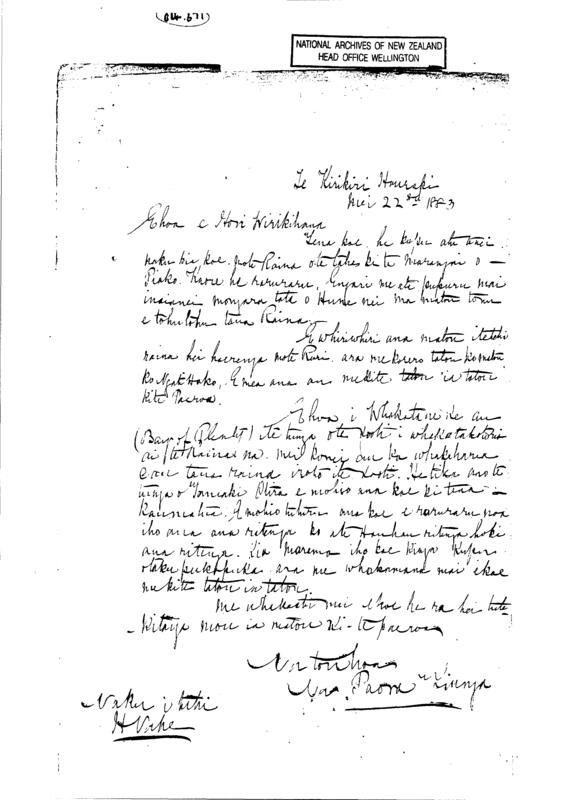 NATIONAL ARCHIVES OF NEW ZEALAND
HEAD OFFICE WELLINGTON
Te Kirikiri Hauraki
Mei 22nd 1883
Ehoa e Hori Wirikihana
Tena koe he kupu atu tenei
naku kia koe mote Raina ote taha ki te Marangai o
Piako. Kaore he raruraru, Engari me ata pupuru mai
inaianei mo tata o Hune nei ma matou tonu
e tohutohu taua Raina.
E whiriwhiri ana matou itetahi
raina hei haerenga mote Ruri ara me korero tatou ko matou
ko Ngati Hako, E mea ana au me kite tatou ia tatou
kite Paeroa.
Ehoa i Whakatane ke au
(Bay of Plenty) ite ote Kooti i whakatakotoria
ai te Raina na. no konei au ka whakaharia
taua raina iroto ite Kooti. He tika ano te
o e mohio ana koe ki tena
E mohio ana koe i raruraru noa
iho ana ritenga ko ate Hauhau ritenga hoki
ana ritenga. Kia marama iho koe kinga kupu
otaku pukapuka ara me whakamana mai ikoe
me kite tatou ia tatou.
Me whakaatu mai ekoe he ra hei
Kitenga mou ia matou ki te paeroa
Na to hoa
Na Paora Tiunga
Naku i tuhi
H